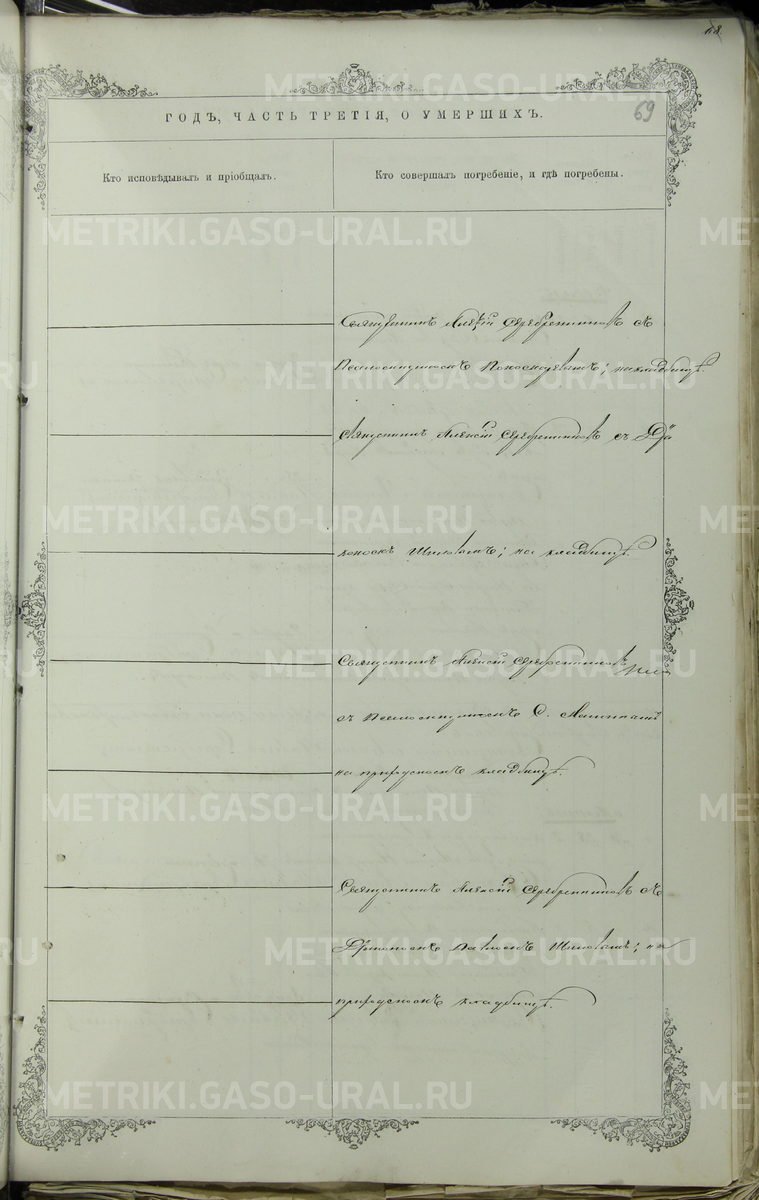 68
69
METRIKI.GASO-URAL.RU
ГОДЪ, ЧАСТЬ ТРЕТІЯ, О УМЕРШИХЪ.
Кто исповѣдывалъ и пріобщалъ.
Кто совершалъ погребеніе, и гдѣ погребены.
Священникъ Алексій Серебренниковъ съ
Псаломщикомъ; на кладбищѣ.
Священникъ Алексій Серебренниковъ съ Діа
кономъ Шиловымъ; на кладбищѣ.
Священникъ Алексій Серебренниковъ
съ Псаломщикомъ С.
на приходскомъ кладбищѣ.
Священникъ Алексій Серебренниковъ съ
Діакономъ Шиловымъ; на
приходскомъ кладбищѣ.